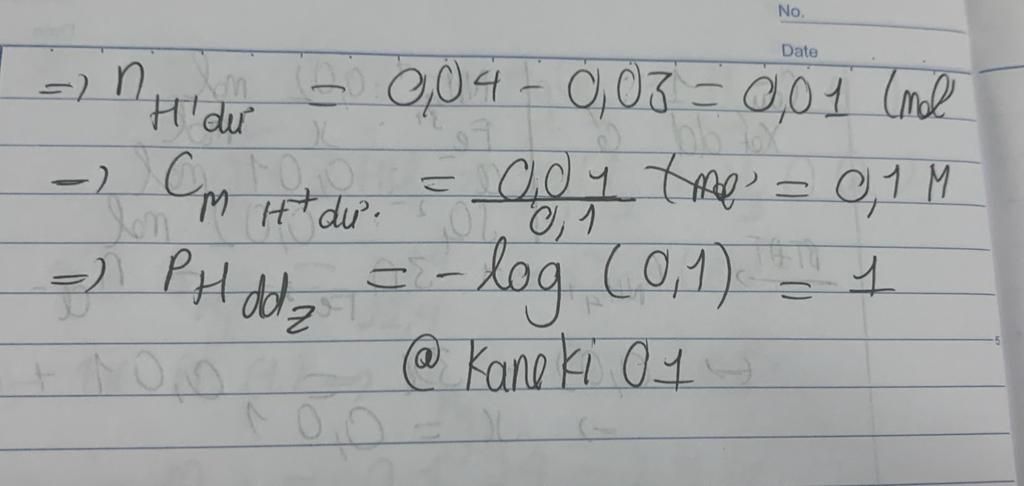 No.
Date
=) n H⁺dư = 0,04 - 0,03 = 0,01 (mol
-) C M H⁺dư. = 0,01 / 0,1 (mol) = 0,1 M
=) PH ddz = - log (0,1) = 1
@ Kaneki 01